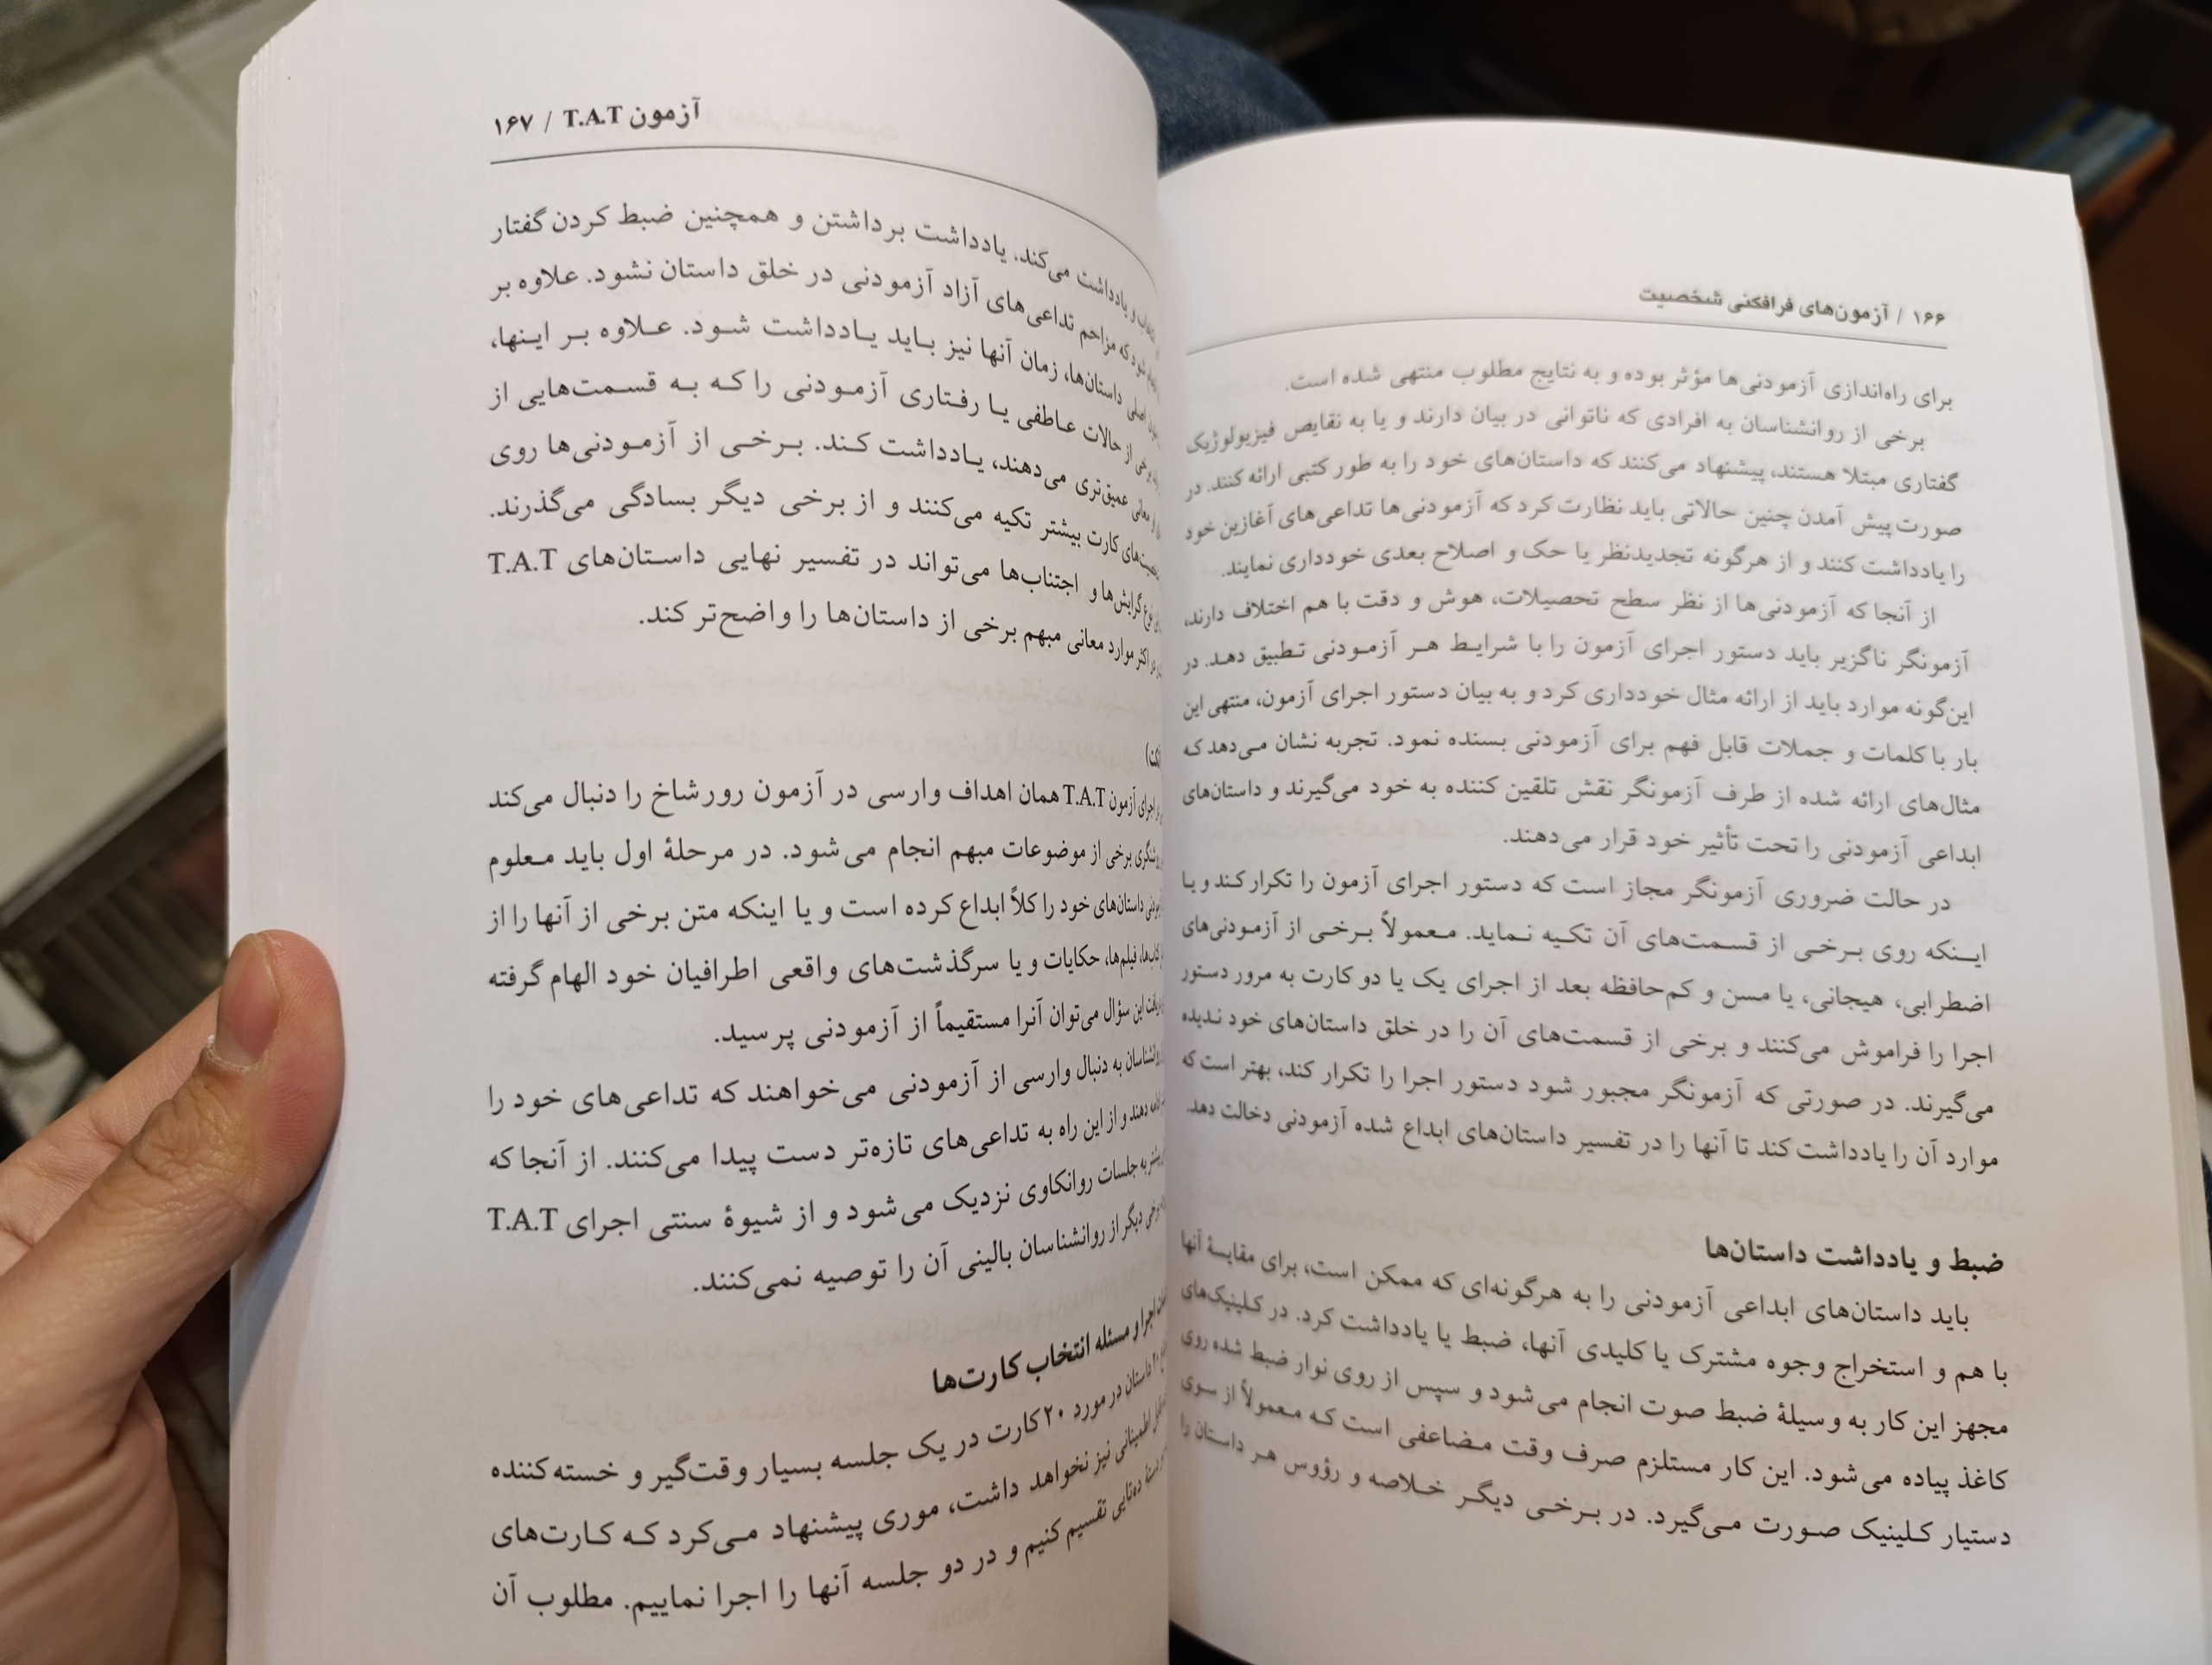 ۱۶۶ / آزمون‌های فرافکنی شخصیت
برای راه‌اندازی آزمودنی‌ها مؤثر بوده و به نتایج مطلوب منتهی شده است.
برخی از روانشناسان به افرادی که ناتوانی در بیان دارند و یا به نقایص فیزیولوژیک
گفتاری مبتلا هستند، پیشنهاد می‌کنند که داستان‌های خود را به طور کتبی ارائه کنند. در
صورت پیش آمدن چنین حالاتی باید نظارت کرد که آزمودنی‌ها تداعی‌های آغازین خود
را یادداشت کنند و از هرگونه تجدیدنظر یا حک و اصلاح بعدی خودداری نمایند.
از آنجا که آزمودنی‌ها از نظر سطح تحصیلات، هوش و دقت با هم اختلاف دارند،
آزمونگر ناگزیر باید دستور اجرای آزمون را با شرایط هر آزمودنی تطبیق دهد. در
این‌گونه موارد باید از ارائه مثال خودداری کرد و به بیان دستور اجرای آزمون، منتهی این
بار با کلمات و جملات قابل فهم برای آزمودنی بسنده نمود. تجربه نشان می‌دهد که
مثال‌های ارائه شده از طرف آزمونگر نقش تلقین کننده به خود می‌گیرند و داستان‌های
ابداعی آزمودنی را تحت تأثیر خود قرار می‌دهند.
در حالت ضروری آزمونگر مجاز است که دستور اجرای آزمون را تکرار کند و یا
اینکه روی برخی از قسمت‌های آن تکیه نماید. معمولاً برخی از آزمودنی‌های
اضطرابی، هیجانی، یا مسن و کم‌حافظه بعد از اجرای یک یا دو کارت به مرور دستور
اجرا را فراموش می‌کنند و برخی از قسمت‌های آن را در خلق داستان‌های خود ندیده
می‌گیرند. در صورتی که آزمونگر مجبور شود دستور اجرا را تکرار کند، بهتر است که
موارد آن را یادداشت کند تا آنها را در تفسیر داستان‌های ابداع شده آزمودنی دخالت دهد.
ضبط و یادداشت داستان‌ها
باید داستان‌های ابداعی آزمودنی را به هرگونه‌ای که ممکن است، برای مقایسهٔ آنها
با هم و استخراج وجوه مشترک یا کلیدی آنها، ضبط یا یادداشت کرد. در کلینیک‌های
مجهز این کار به وسیلهٔ ضبط صوت انجام می‌شود و سپس از روی نوار ضبط شده روی
کاغذ پیاده می‌شود. این کار مستلزم صرف وقت مضاعفی است که معمولاً از سوی
دستیار کلینیک صورت می‌گیرد. در برخی دیگر خلاصه و رؤوس هر داستان را
آزمون T.A.T / ۱۶۷
و یادداشت می‌کند. یادداشت برداشتن و همچنین ضبط کردن گفتار
شود که مزاحم تداعی‌های آزاد آزمودنی در خلق داستان نشود. علاوه بر
اصلی داستان‌ها، زمان آنها نیز باید یادداشت شود. علاوه بر اینها،
برخی از حالات عاطفی یا رفتاری آزمودنی را که به قسمت‌هایی از
معانی عمیق‌تری می‌دهند، یادداشت کند. برخی از آزمودنی‌ها روی
کارت بیشتر تکیه می‌کنند و از برخی دیگر بسادگی می‌گذرند.
نوع گرایش‌ها و اجتناب‌ها می‌تواند در تفسیر نهایی داستان‌های T.A.T
در اکثر موارد معانی مبهم برخی از داستان‌ها را واضح‌تر کند.
اجرای آزمون T.A.T همان اهداف وارسی در آزمون رورشاخ را دنبال می‌کند
برخی از موضوعات مبهم انجام می‌شود. در مرحلهٔ اول باید معلوم
داستان‌های خود را کلاً ابداع کرده است و یا اینکه متن برخی از آنها را از
کتاب‌ها، فیلم‌ها، حکایات و یا سرگذشت‌های واقعی اطرافیان خود الهام گرفته
این سؤال می‌توان آنرا مستقیماً از آزمودنی پرسید.
روانشناسان به دنبال وارسی از آزمودنی می‌خواهند که تداعی‌های خود را
ادامه دهند و از این راه به تداعی‌های تازه‌تر دست پیدا می‌کنند. از آنجا که
بیشتر به جلسات روانکاوی نزدیک می‌شود و از شیوهٔ سنتی اجرای T.A.T
برخی دیگر از روانشناسان بالینی آن را توصیه نمی‌کنند.
اجرا و مسئله انتخاب کارت‌ها
۲۰ داستان در مورد ۲۰ کارت در یک جلسه بسیار وقت‌گیر و خسته کننده
اطمینانی نیز نخواهد داشت، موری پیشنهاد می‌کرد که کارت‌های
دسته ده‌تایی تقسیم کنیم و در دو جلسه آنها را اجرا نماییم. مطلوب آن